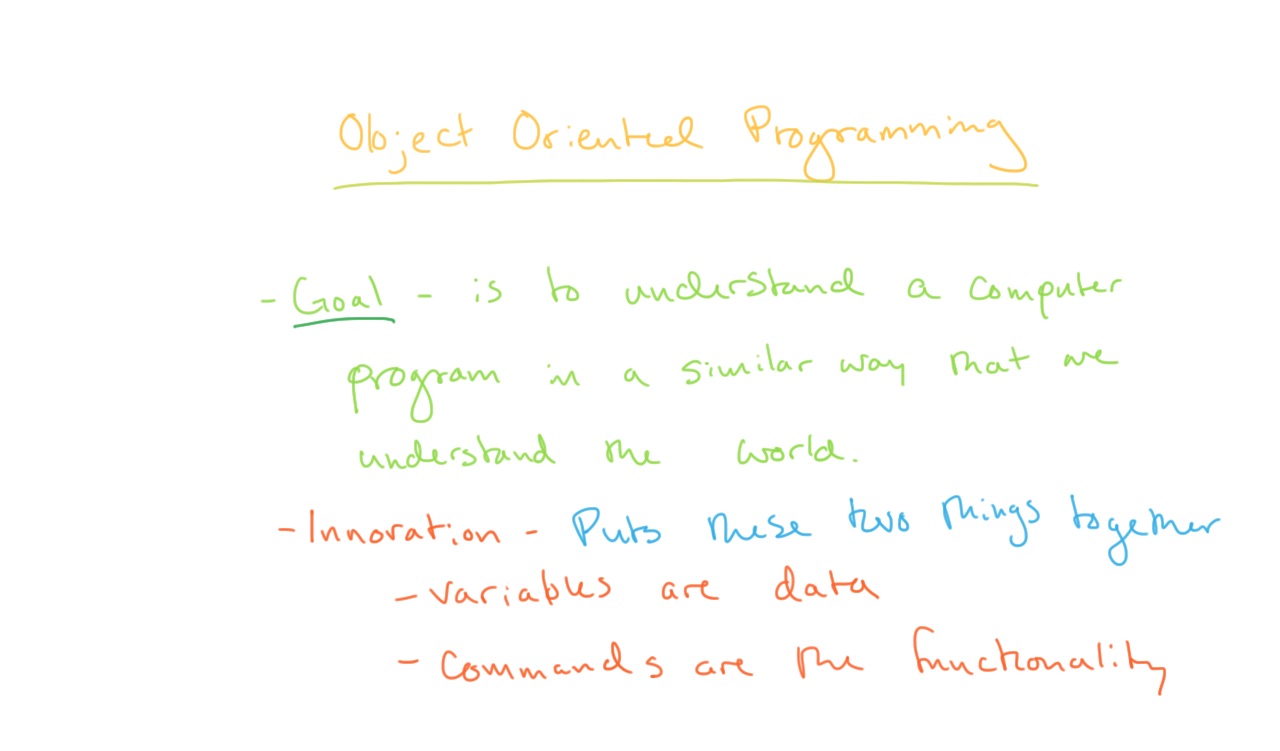 Object Oriented Programming
- Goal - is to understand a computer
program in a similar way that we
understand the world.
- Innovation - Puts these two things together
- variables are data
- Commands are the functionality